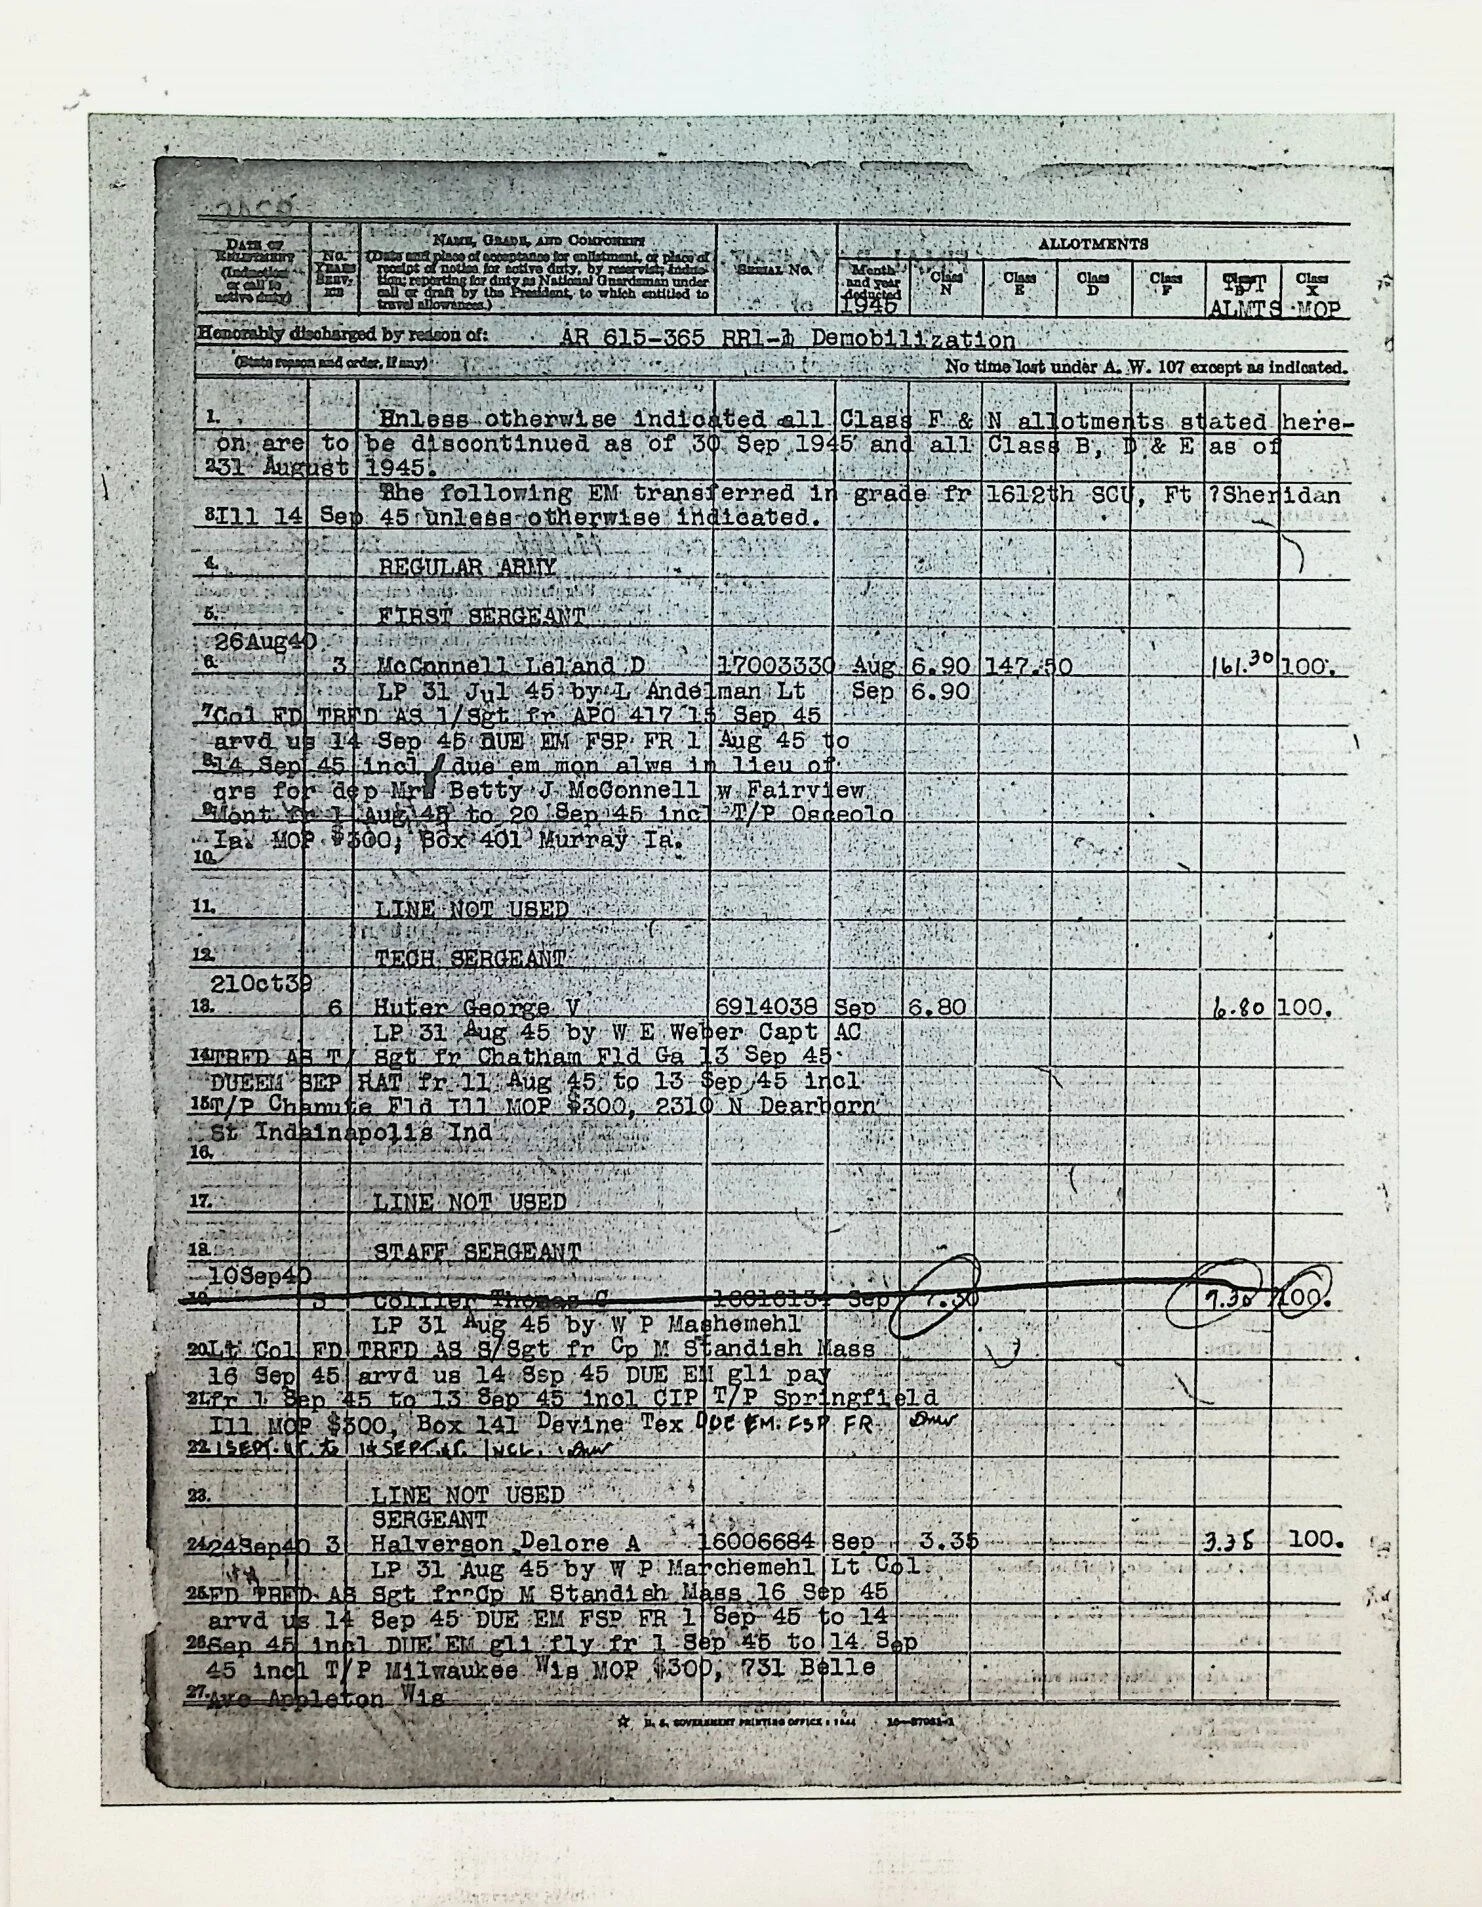 DATE OF ENLISTMENT (Induction or call to active duty)
NO. YEARS SERVICE
NAME, GRADE, AND COMPONENT
(Date and place of acceptance for enlistment, or place of receipt of notice for active duty, by reservist; induction; reporting for duty as National Guardsman under call or draft by the President, to which entitled to travel allowances.)
SERIAL NO.
ALLOTMENTS
Month and year deducted 1945
Class N
Class E
Class D
Class F
ALMTS
Class X MOP
Honorably discharged by reason of: AR 615-365 RR1-1 Demobilization
(State reason and order, if any) No time lost under A. W. 107 except as indicated.
1. Unless otherwise indicated all Class F & N allotments stated here-
on are to be discontinued as of 30 Sep 1945 and all Class B, D & E as of
2. 31 August 1945.
The following EM transferred in grade fr 1612th SCU, Ft ?Sheridan
3. Ill 14 Sep 45 unless otherwise indicated.
4. REGULAR ARMY
5. FIRST SERGEANT
26Aug40
6. 3 McConnell Leland D 17003330 Aug 6.90 147.50 161.30 100.
LP 31 Jul 45 by L Andelman Lt Sep 6.90
7. Col FD TRFD AS 1/Sgt fr APO 417 15 Sep 45
arvd us 14 Sep 45 DUE EM FSP FR 1 Aug 45 to
8. 14 Sep 45 incl / due em mon alws in lieu of
qrs for dep Mrs Betty J McConnell w Fairview
9. Mont fr 1 Aug 45 to 20 Sep 45 incl T/P Osceolo
Ia. MOP $300, Box 401 Murray Ia.
10.
11. LINE NOT USED
12. TECH SERGEANT
21Oct39
13. 6 Huter George V 6914038 Sep 6.80 6.80 100.
LP 31 Aug 45 by W E Weber Capt AC
14. TRFD AS T/ Sgt fr Chatham Fld Ga 13 Sep 45
DUEEM SEP RAT fr 11 Aug 45 to 13 Sep 45 incl
15. T/P Chanute Fld Ill MOP $300, 2310 N Dearborn
St Indainapolis Ind
16.
17. LINE NOT USED
18. STAFF SERGEANT
10Sep40
19. 3 Collier Thomas C Sep 7.30 7.30 100.
LP 31 Aug 45 by W P Mashemehl
20. Lt Col FD TRFD AS S/Sgt fr Cp M Standish Mass
16 Sep 45 arvd us 14 Ssp 45 DUE EM gli pay
21. fr 1 Sep 45 to 13 Sep 45 incl CIP T/P Springfield
Ill MOP $300, Box 141 Devine Tex DUE EM. FSP FR
22. 1 SEPT. 45 to 14 SEPT. 45 INCL.
23. LINE NOT USED
SERGEANT
24. 24Sep40 3 Halverson Delore A 16006684 Sep 3.35 3.35 100.
LP 31 Aug 45 by W P Marchemehl Lt Col
25. FD TRFD AS Sgt fr Cp M Standish Mass 16 Sep 45
arvd us 14 Sep 45 DUE EM FSP FR 1 Sep 45 to 14
26. Sep 45 incl DUE EM gli fly fr 1 Sep 45 to 14 Sep
45 incl T/P Milwaukee Wis MOP $300, 731 Belle
27. Ave Appleton Wis
☆ U. S. GOVERNMENT PRINTING OFFICE : 1944